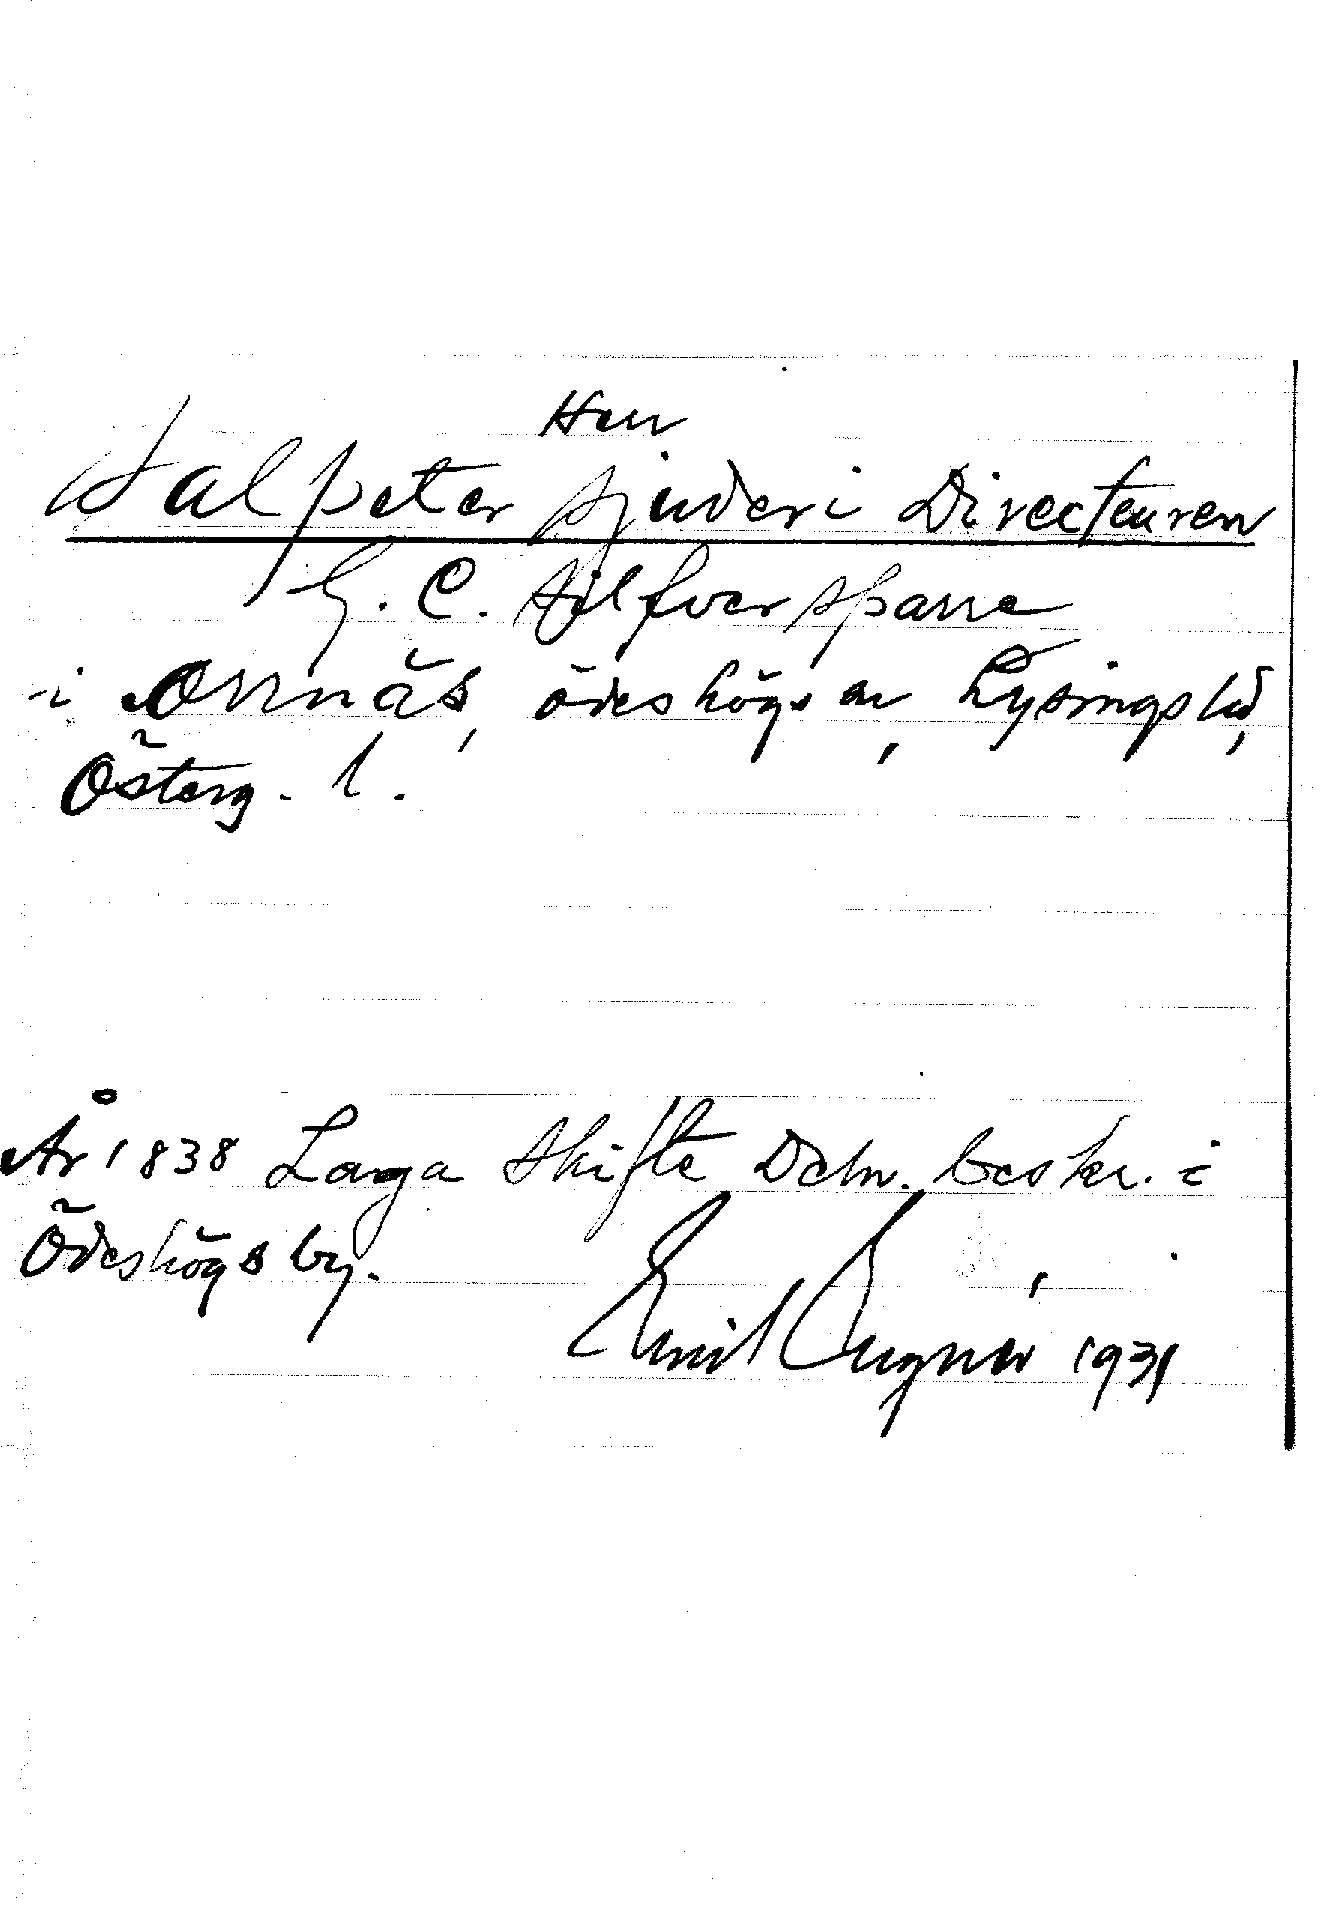 Herr
Salpeter sjuderi Directeuren
G. C. Silfversparre
i Orrnäs, Ödeshögs sn, Lysings hd,
Österg. l.
År 1838 Laga Skifte Deln. beskr. i
Ödeshögs by.
Emil 1931